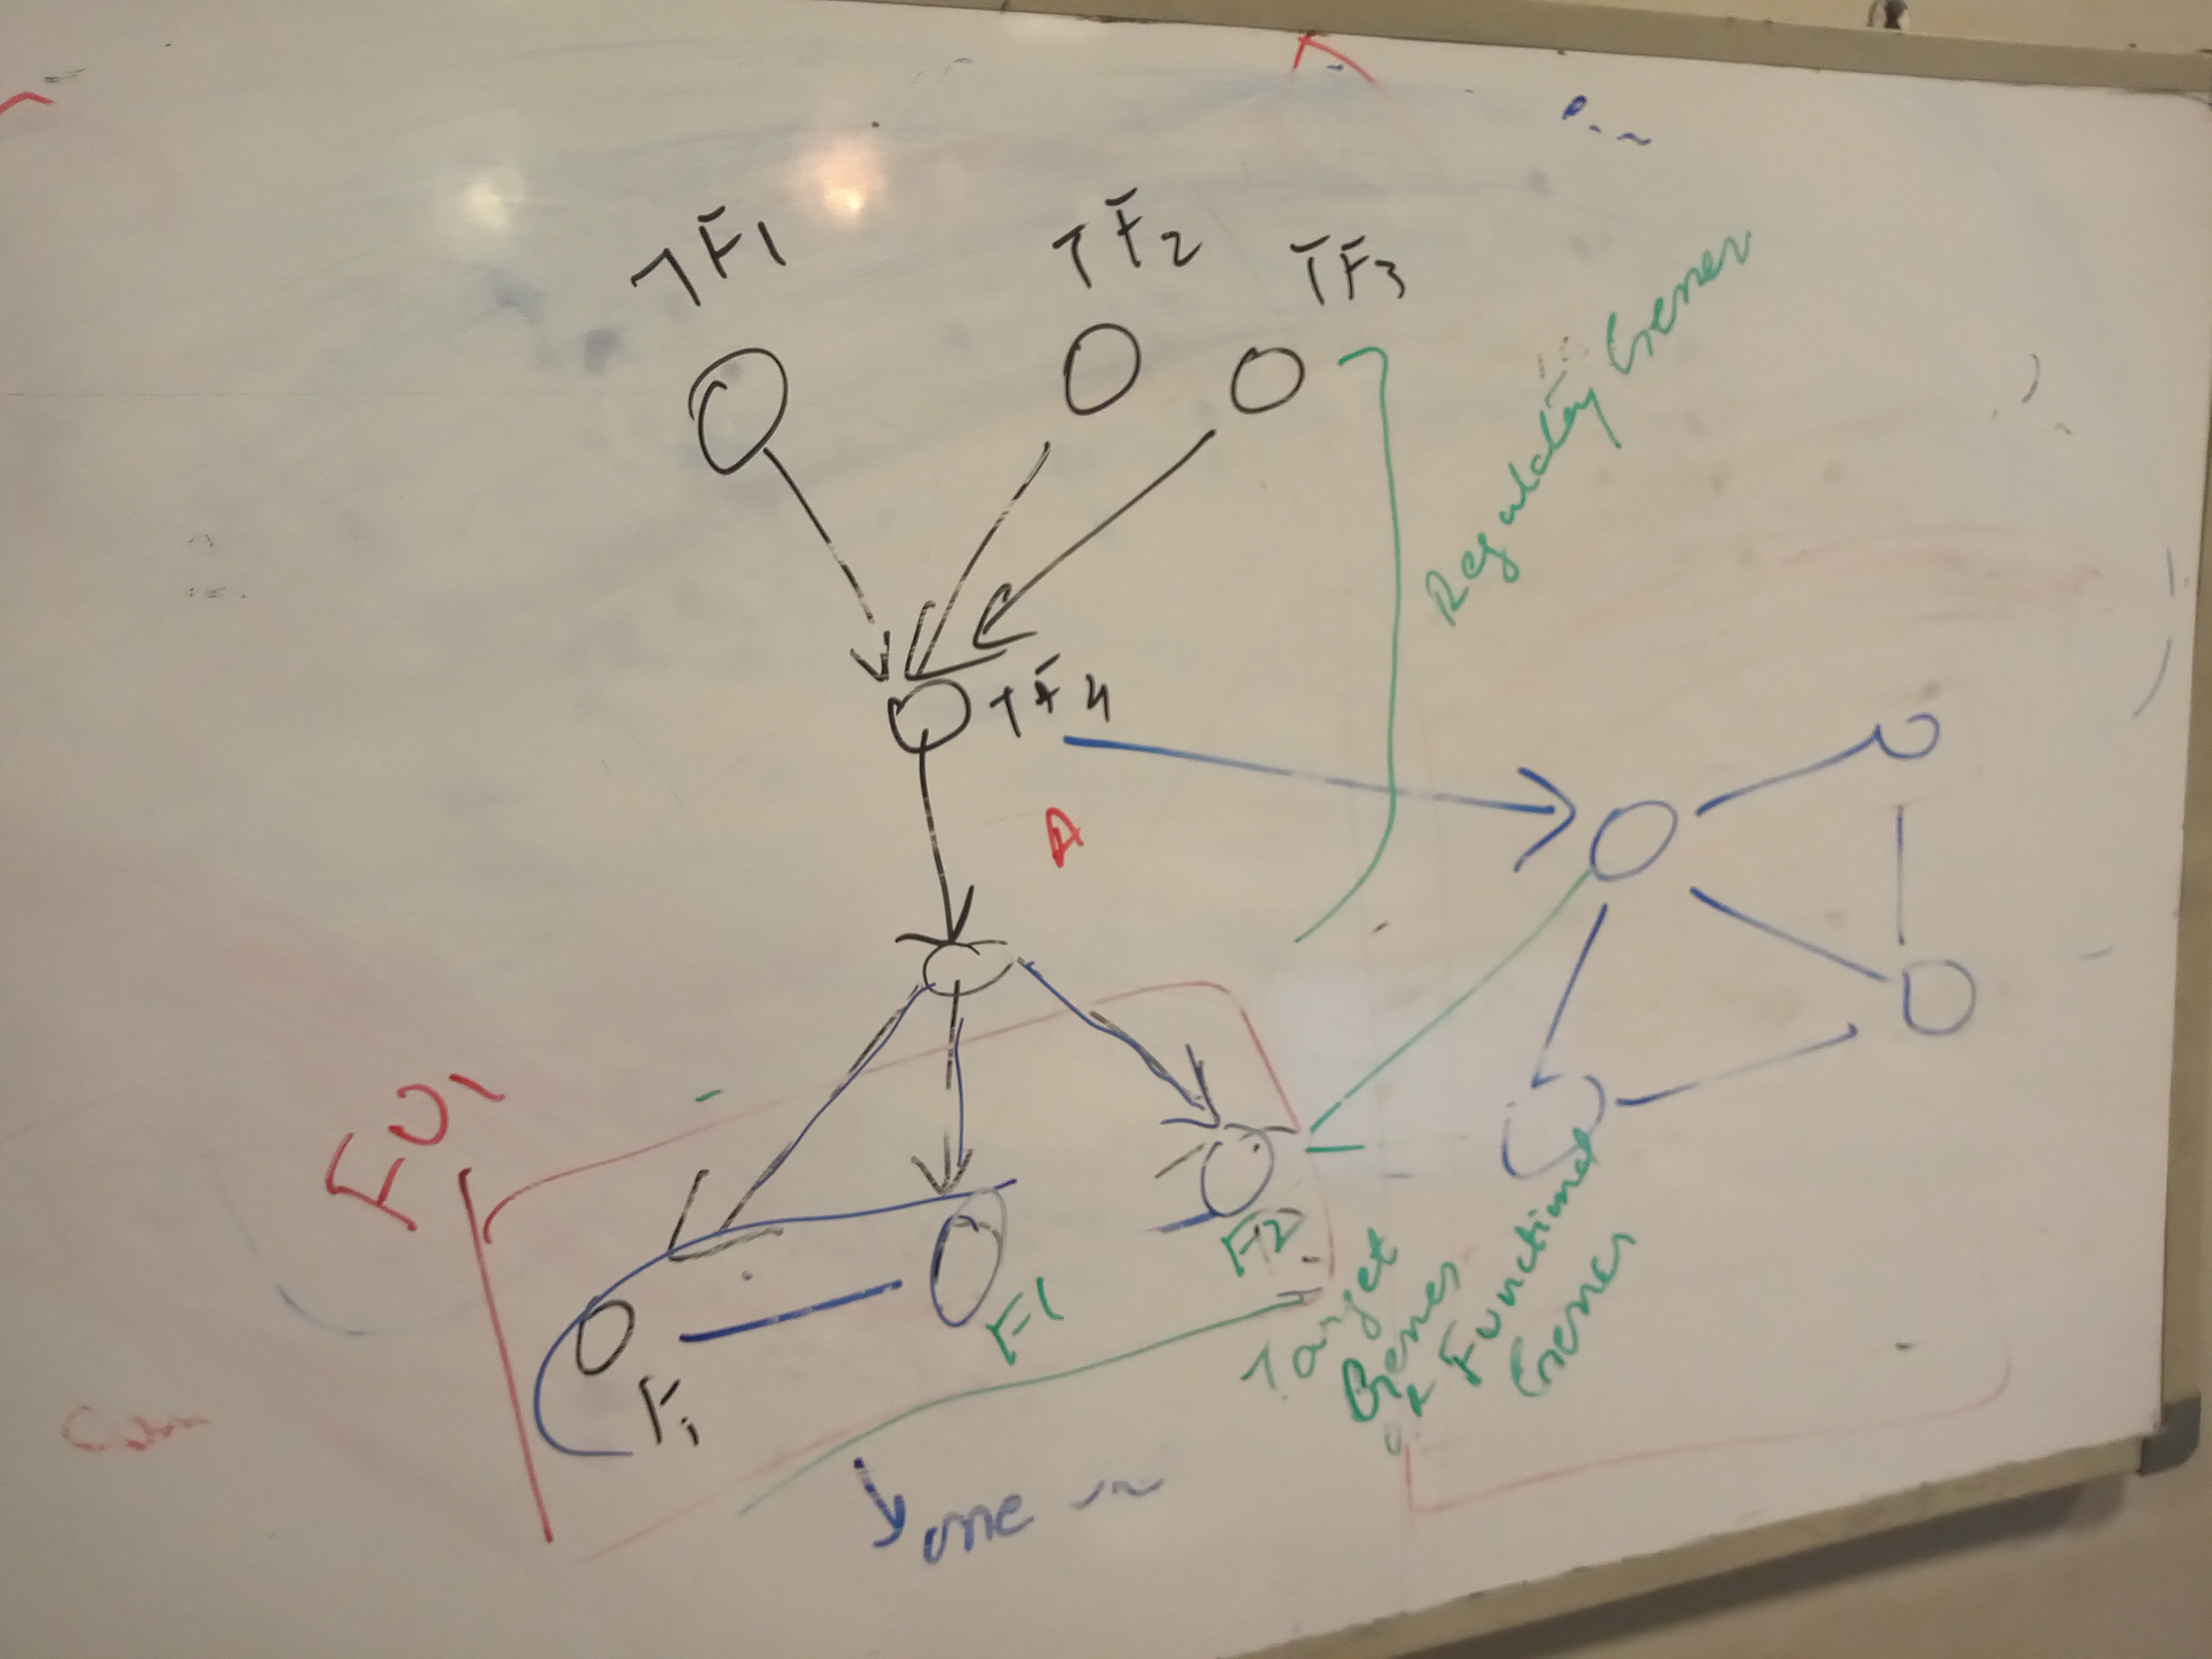 TF1
TF2
TF3
Regulatory Genes
TF4
A
F1
F2
F1
Target
Genes
or Functional
Genes
one